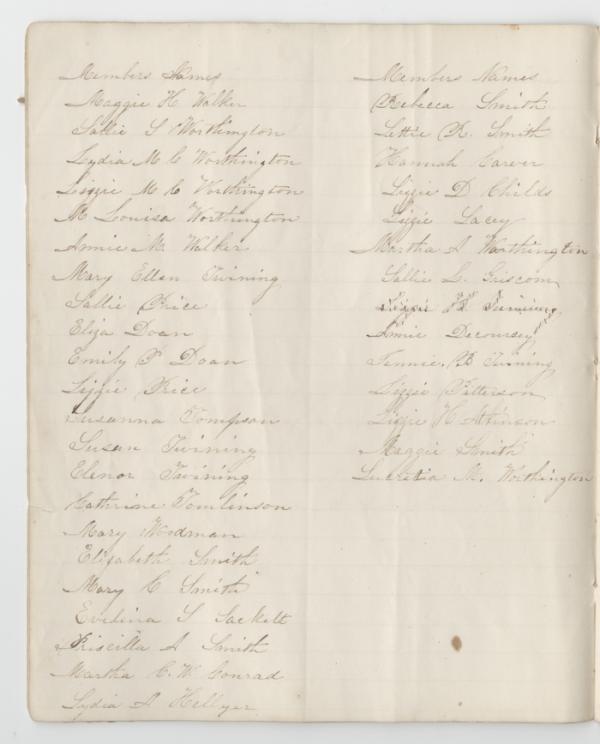 Members Names
Maggie H Walker
Sallie S Worthington
Lydia M C Worthington
Lizzie M C Worthington
M Louisa Worthington
Annie M. Walker
Mary Ellen Twining
Sallie Price
Eliza Doan
Emily P Doan
Lizzie Price
Susanna Tompson
Susan Twining
Elenor Twining
Kathrine Tomlinson
Mary Woodman
Elizabeth Smith
Mary C Smith
Evelina S Sackett
Priscilla A Smith
Martha C. W. Conrad
Lydia A Hellyer
Members Names
Rebecca Smith
Lettie R. Smith
Hannah Carver
Lizzie D Childs
Lizzie Lacey
Martha A Worthington
Sallie L. Griscom
Lizzie Twining
Annie Decoursey
Tennie. B Twining
Lizzie Patterson
Lizzie H Atkinson
Maggie Smith
Lucretia M. Worthington